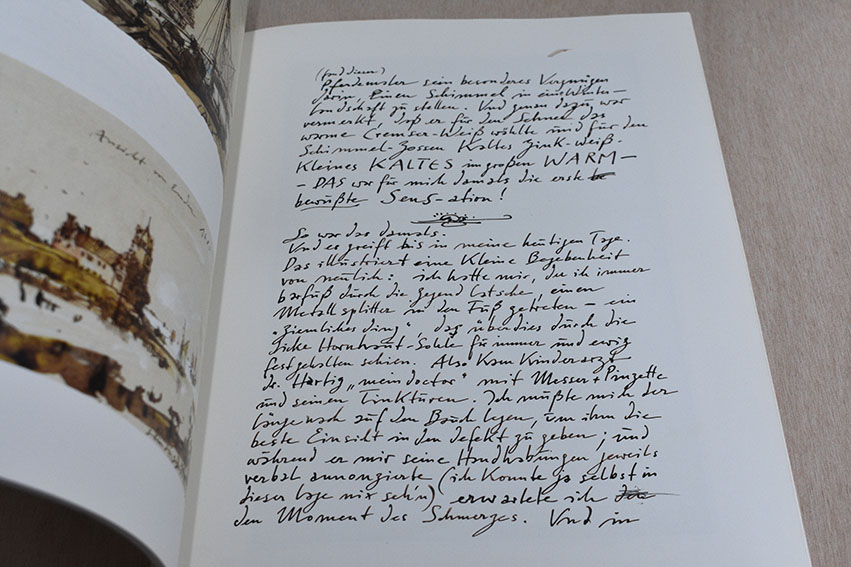 Ansicht von
(fand dieser)
Pferdemaler sein besonderes Vergnügen
darin, Einen Schimmel in eine Winter-
landschaft zu stellen. Und genau dazu war
vermerkt, daß er für den Schnee das
warme Cremser-Weiß wählte und für den
Schimmel-Zossen Kaltes Zink-Weiß.
Kleines KALTES in großen WARM-
- DAS war für mich damals die erste
bewußte Sens-ation!
So war das damals.
Und es greift bis in meine heutigen Tage.
Das illustriert eine Kleine Begebenheit
von neulich: ich hatte mir, der ich immer
barfuß durch die Gegend latsche, einen
Metallsplitter in den Fuß getreten – ein
„ziemliches Ding", das überdies durch die
dicke Hornhaut-Sohle für immer und ewig
festgehalten schien. Also Kam Kinderarzt
dr. Hartig „mein doctor" mit Messer + Pinzette
und seinen Tinktüren. Ich müßte mich der
länge nach auf den Bauch legen, um ihm die
beste Einsicht in den Defekt zu geben; und
während er mir seine Handhabungen jeweils
verbal annongierte (ich Konnte ja selbst in
dieser lage nix seh'n) erwartete ich
den Moment des Schmerzes. Und in